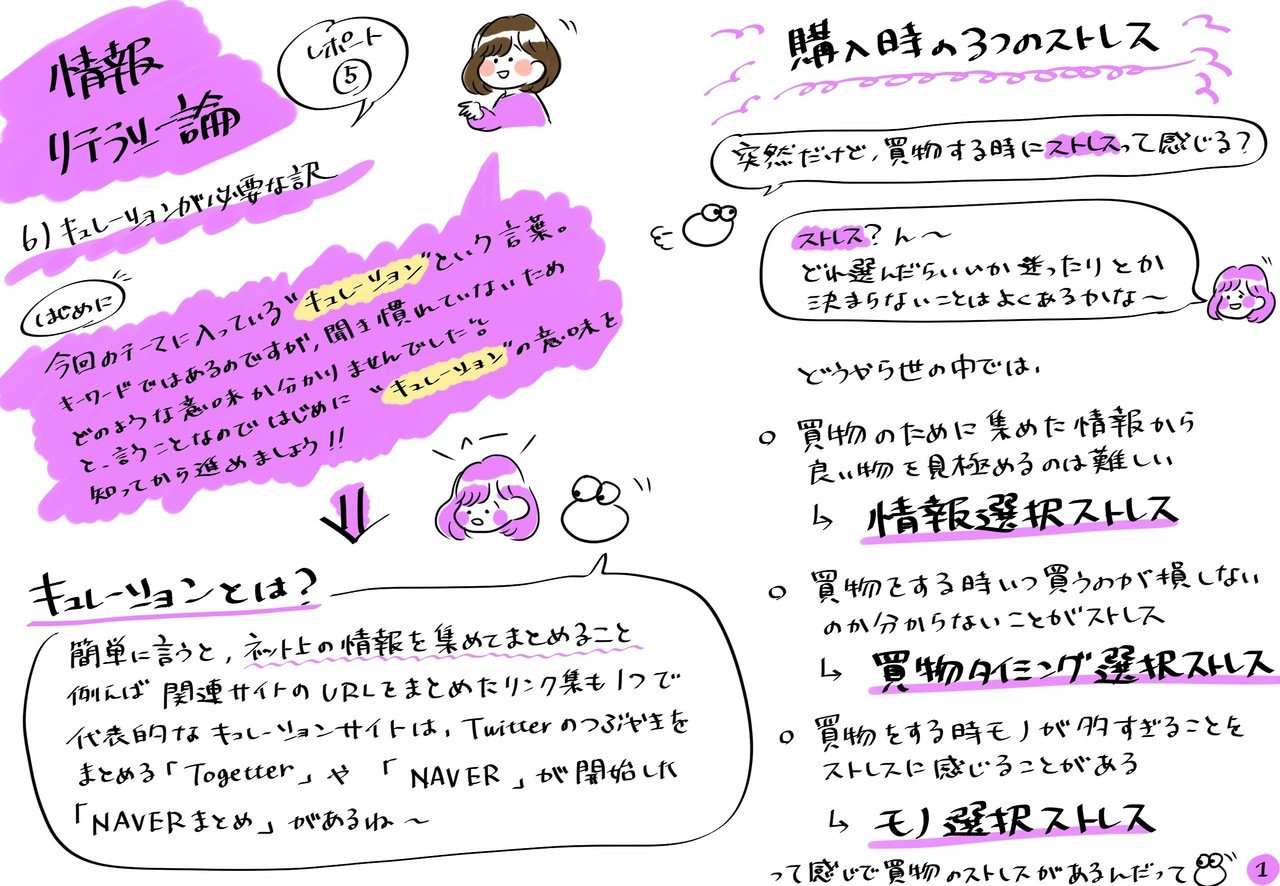 情報
リテラシー論
レポート
⑤
6)キュレーションが必要な訳
はじめに
今回のテーマに入っている"キュレーション"という言葉。
キーワードではあるのですが,聞き慣れていないため
どのような意味か分かりませんでした。
と、言うことなのではじめに"キュレーション"の意味を
知ってから進めましょう!!
キュレーションとは?
簡単に言うと,ネット上の情報を集めてまとめること
例えば関連サイトのURLをまとめたリンク集も1つで
代表的なキュレーションサイトは,Twitterのつぶやきを
まとめる「Togetter」や「NAVER」が開始した
「NAVERまとめ」があるね〜
購入時の3つのストレス
突然だけど,買物する時にストレスって感じる?
ストレス?ん〜
どれ選んだらいいか迷ったりとか
決まらないことはよくあるかな〜
どうやら世の中では,
○ 買物のために集めた情報から
良い物を見極めるのは難しい
↳ 情報選択ストレス
○ 買物をする時いつ買うのが損しない
のか分からないことがストレス
↳ 買物タイミング選択ストレス
○ 買物をする時モノが多すぎることを
ストレスに感じることがある
↳ モノ選択ストレス
って感じで買物のストレスがあるんだって
1